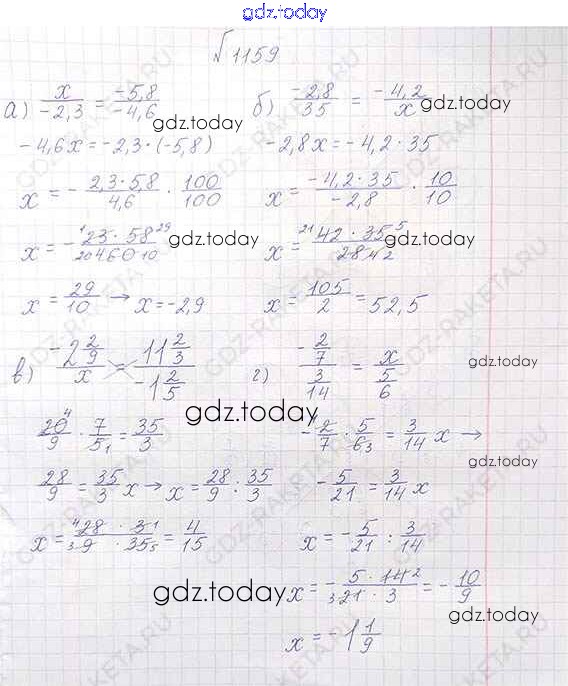 gdz.today
√1159
а) x/-2,3 = -5,8/-4,6
gdz.today
-4,6x = -2,3·(-5,8)
x = - 2,3·5,8/4,6 · 100/100
x = - ¹23·58²⁹/₂₀460₁₀
gdz.today
x = 29/10 → x = -2,9
б) -2,8/35 = -4,2/x
gdz.today
-2,8x = -4,2·35
x = -4,2·35/-2,8 · 10/10
x = ²¹42·35⁵/28₄₂
gdz.today
x = 105/2 = 52,5
в) -2 2/9 / x = 11 2/3 / -1 2/5
gdz.today
20⁴/9 · 7/5₁ = 35/3
28/9 = 35/3 x → x = 28/9 : 35/3
x = ⁴28·3¹/₃9·35₅ = 4/15
gdz.today
г) -2/7 / 3/14 = x / 5/6
-2/7 · 5/6₃ = 3/14 x →
-5/21 = 3/14 x
x = -5/21 : 3/14
x = -5·14²/₃21·3 = -10/9
gdz.today
x = -1 1/9
GDZ-RAKETA.RU